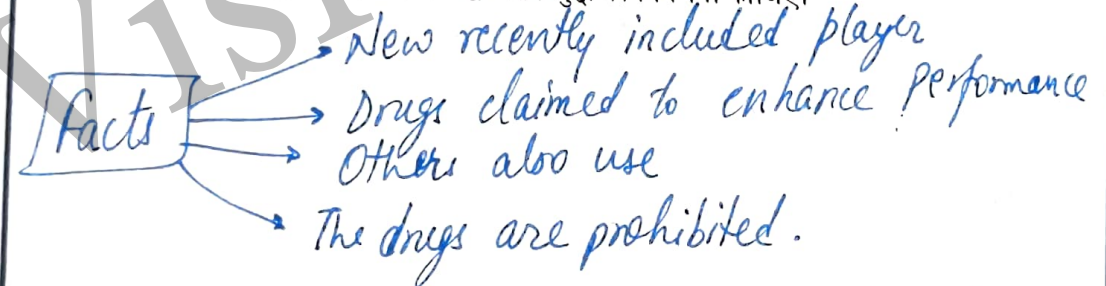 New recently included player
Facts
Drugs claimed to enhance performance
Others also use
The drugs are prohibited.